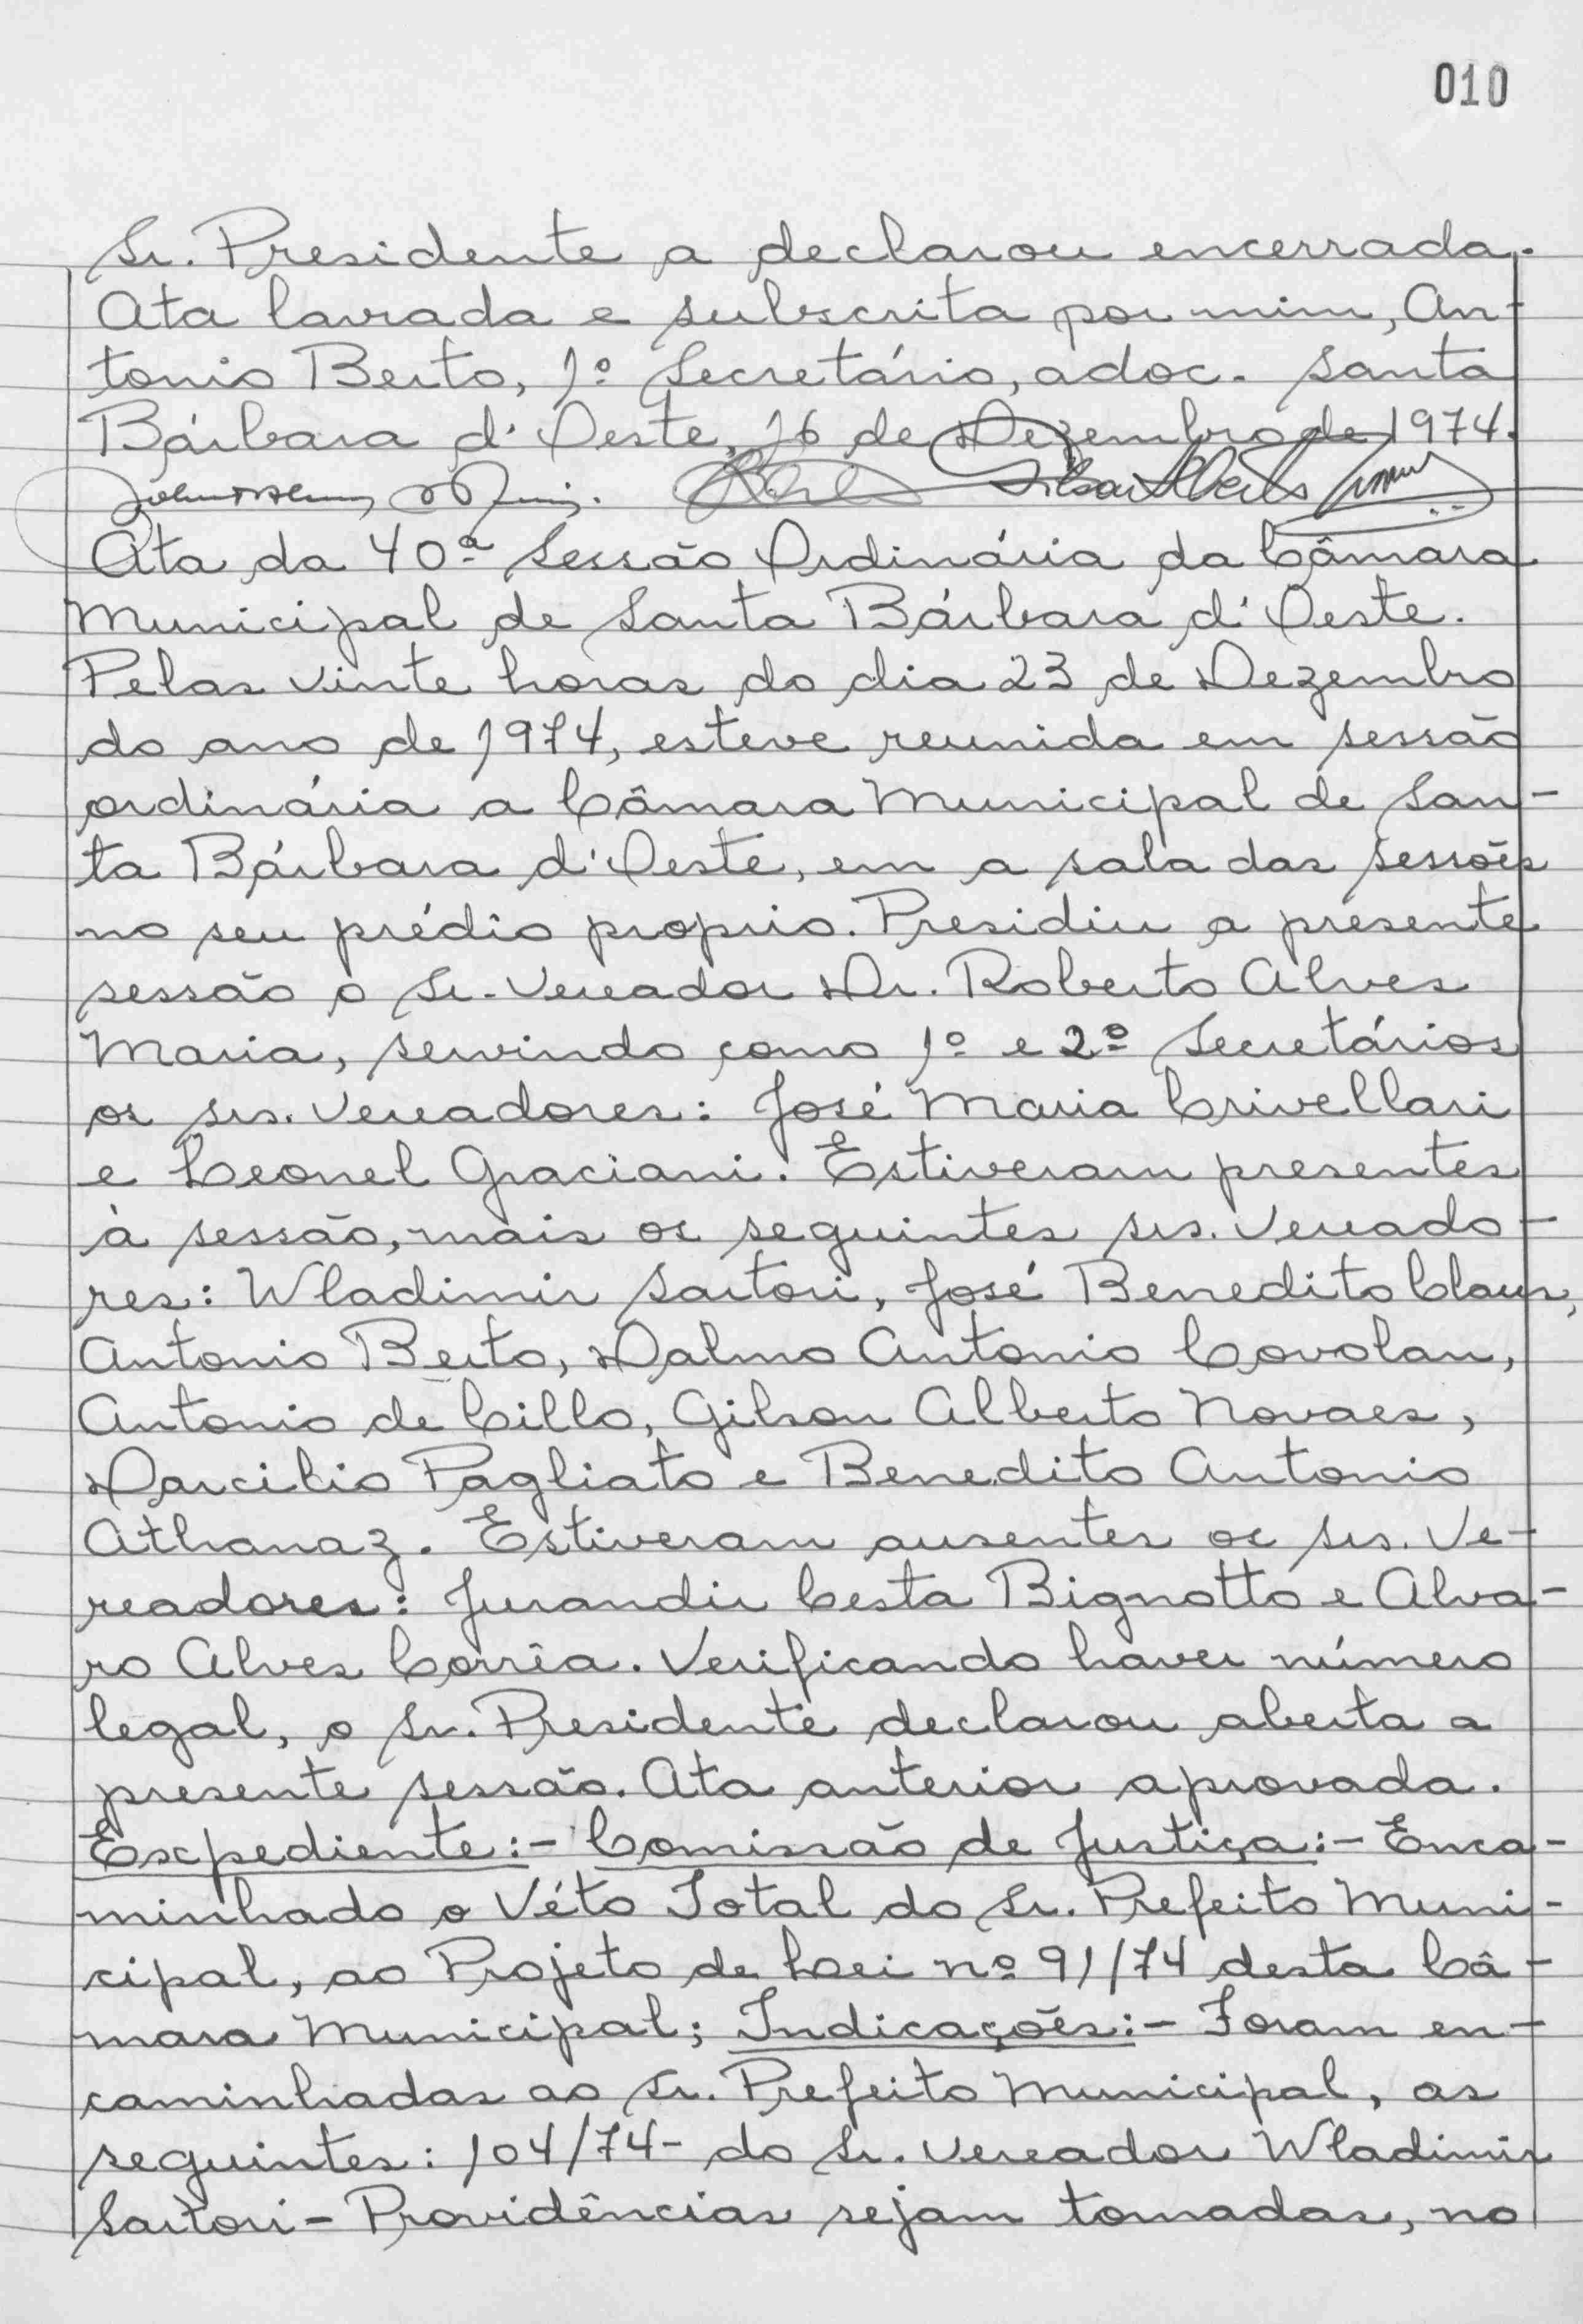 010
Sr. Presidente a declarou encerrada.
Ata lavrada e subscrita por mim, An-
tonio Berto, 1º Secretário, adoc. Santa
Bárbara d'Oeste, 16 de Dezembro de 1974.
Gilson Alberto
Ata da 40ª Sessão Ordinária da Câmara
Municipal de Santa Bárbara d'Oeste.
Pelas vinte horas do dia 23 de Dezembro
do ano de 1974, esteve reunida em sessão
ordinária a Câmara Municipal de San-
ta Bárbara d'Oeste, em a sala das sessões
no seu prédio proprio. Presidiu a presente
sessão o Sr. Vereador Dr. Roberto Alves
Maria, servindo como 1º e 2º Secretários
os srs. Vereadores: José Maria Crivellari
e Leonel Graciani. Estiveram presentes
à sessão, mais os seguintes srs. Vereado-
res: Wladimir Sartori, José Benedito Claus,
Antonio Berto, Dalmo Antonio Covolan,
Antonio de Cillo, Gilson Alberto Novaes,
Darcilio Pagliato e Benedito Antonio
Athanaz. Estiveram ausentes os srs. Ve-
readores: Jurandir Cesta Bignotto e Alva-
ro Alves Corrêa. Verificando haver número
legal, o Sr. Presidente declarou aberta a
presente sessão. Ata anterior aprovada.
Expediente:- Comissão de Justiça:- Enca-
minhado o Véto Total do Sr. Prefeito Muni-
cipal, ao Projeto de Lei nº 91/74 desta Câ-
mara Municipal; Indicações:- Foram en-
caminhadas ao Sr. Prefeito Municipal, as
seguintes: 104/74- do Sr. Vereador Wladimir
Sartori - Providências sejam tomadas, no